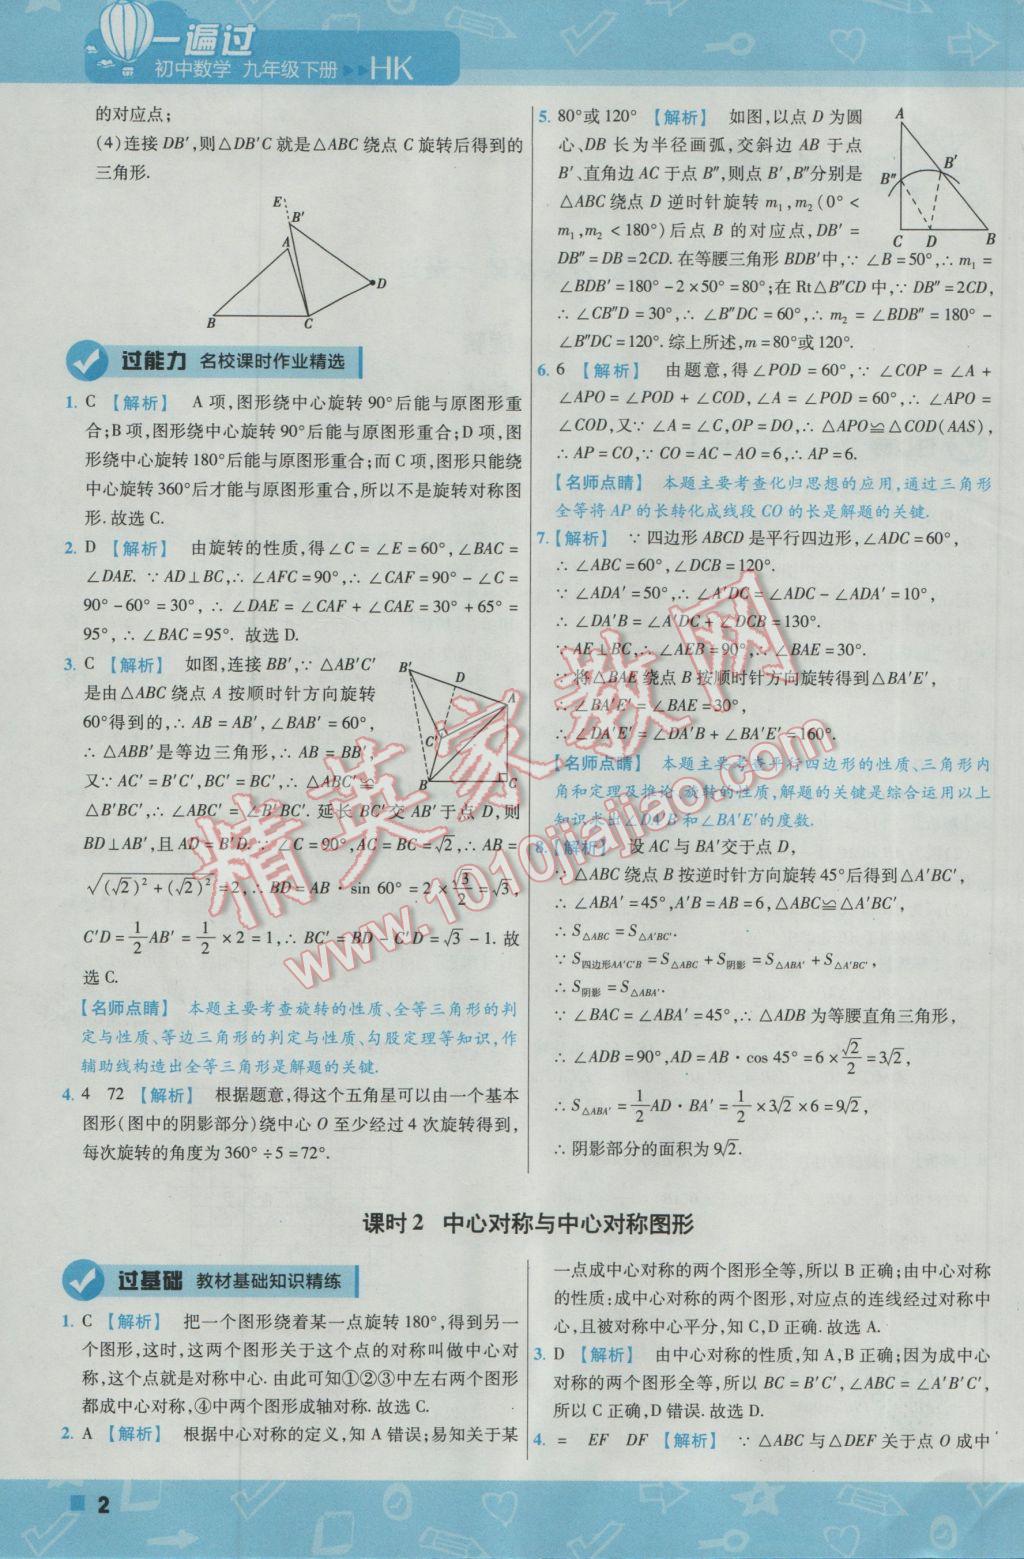 一遍过
初中数学 九年级下册 ▶▶ HK
的对应点；
(4)连接 DB′,则△DB′C 就是△ABC 绕点 C 旋转后得到的
三角形.
E
B′
A
D
B
C
过能力 名校课时作业精选
1. C 【解析】 A 项,图形绕中心旋转 90°后能与原图形重
合；B 项,图形绕中心旋转 90°后能与原图形重合；D 项,图
形绕中心旋转 180°后能与原图形重合；而 C 项,图形只能绕
中心旋转 360°后才能与原图形重合,所以不是旋转对称图
形.故选 C.
2. D 【解析】 由旋转的性质,得∠C = ∠E = 60°,∠BAC =
∠DAE. ∵ AD⊥BC,∴ ∠AFC = 90°,∴ ∠CAF = 90° - ∠C =
90° - 60° = 30°, ∴ ∠DAE = ∠CAF + ∠CAE = 30° + 65° =
95°,∴ ∠BAC = 95°. 故选 D.
3. C 【解析】 如图,连接 BB′,∵ △AB′C′
是由△ABC 绕点 A 按顺时针方向旋转
60°得到的,∴ AB = AB′,∠BAB′ = 60°,
∴ △ABB′是等边三角形,∴ AB = BB′,
又∵ AC′ = B′C′,BC′ = BC′,∴ △ABC′≌
△B′BC′,∴ ∠ABC′ = ∠B′BC′. 延长 BC′交 AB′于点 D,则
BD⊥AB′,且 AD = B′D. ∵ ∠C = 90°,AC = BC = √2,∴ AB =
√((√2)² + (√2)²) = 2,∴ BD = AB · sin 60° = 2 × √3/2 = √3,
C′D = 1/2 AB′ = 1/2 × 2 = 1,∴ BC′ = BD - C′D = √3 - 1. 故
选 C.
【名师点睛】 本题主要考查旋转的性质、全等三角形的判
定与性质、等边三角形的判定与性质、勾股定理等知识,作
辅助线构造出全等三角形是解题的关键.
B′
D
A
C′
B
C
4. 4 72 【解析】 根据题意,得这个五角星可以由一个基本
图形(图中的阴影部分)绕中心 O 至少经过 4 次旋转得到,
每次旋转的角度为 360° ÷ 5 = 72°.
5. 80°或 120° 【解析】 如图,以点 D 为圆
心、DB 长为半径画弧,交斜边 AB 于点
B′、直角边 AC 于点 B″,则点 B′,B″分别是
△ABC 绕点 D 逆时针旋转 m₁,m₂(0° <
m₁,m₂ < 180°)后点 B 的对应点,DB′ =
DB″ = DB = 2CD. 在等腰三角形 BDB′中,∵ ∠B = 50°,∴ m₁ =
∠BDB′ = 180° - 2 × 50° = 80°；在 Rt△B″CD 中,∵ DB″ = 2CD,
∴ ∠CB″D = 30°,∴ ∠B″DC = 60°,∴ m₂ = ∠BDB″ = 180° -
∠B″DC = 120°. 综上所述,m = 80°或 120°.
A
B′
B″
C
D
B
6. 6 【解析】 由题意,得∠POD = 60°,∵ ∠COP = ∠A +
∠APO = ∠POD + ∠COD,∠A = ∠POD = 60°,∴ ∠APO =
∠COD,又∵ ∠A = ∠C,OP = DO,∴ △APO≌△COD(AAS),
∴ AP = CO,∵ CO = AC - AO = 6,∴ AP = 6.
【名师点睛】 本题主要考查化归思想的应用,通过三角形
全等将 AP 的长转化成线段 CO 的长是解题的关键.
7.【解析】 ∵ 四边形 ABCD 是平行四边形,∠ADC = 60°,
∴ ∠ABC = 60°,∠DCB = 120°.
∵ ∠ADA′ = 50°,∴ ∠A′DC = ∠ADC - ∠ADA′ = 10°,
∴ ∠DA′B = ∠A′DC + ∠DCB = 130°.
∵ AE⊥BC,∴ ∠AEB = 90°,∴ ∠BAE = 30°.
∵ 将△BAE 绕点 B 按顺时针方向旋转得到△BA′E′,
∴ ∠BA′E′ = ∠BAE = 30°,
∴ ∠DA′E′ = ∠DA′B + ∠BA′E′ = 160°.
【名师点睛】 本题主要考查平行四边形的性质、三角形内
角和定理及推论、旋转的性质,解题的关键是综合运用以上
知识求出∠DA′B 和∠BA′E′的度数.
8.【解析】 设 AC 与 BA′交于点 D,
∵ △ABC 绕点 B 按逆时针方向旋转 45°后得到△A′BC′,
∴ ∠ABA′ = 45°,A′B = AB = 6,△ABC≌△A′BC′,
∴ S△ABC = S△A′BC′.
∵ S四边形AA′C′B = S△ABC + S阴影 = S△ABA′ + S△A′BC′,
∴ S阴影 = S△ABA′.
∵ ∠BAC = ∠ABA′ = 45°,∴ △ADB 为等腰直角三角形,
∴ ∠ADB = 90°,AD = AB · cos 45° = 6 × √2/2 = 3√2,
∴ S△ABA′ = 1/2 AD · BA′ = 1/2 × 3√2 × 6 = 9√2,
∴ 阴影部分的面积为 9√2.
课时 2 中心对称与中心对称图形
过基础 教材基础知识精练
1. C 【解析】 把一个图形绕着某一点旋转 180°,得到另一
个图形,这时,这两个图形关于这个点的对称叫做中心对
称,这个点就是对称中心. 由此可知①②③中左右两个图形
都成中心对称,④中两个图形成轴对称. 故选 C.
2. A 【解析】 根据中心对称的定义,知 A 错误；易知关于某
一点成中心对称的两个图形全等,所以 B 正确；由中心对称
的性质：成中心对称的两个图形,对应点的连线经过对称中
心,且被对称中心平分,知 C,D 正确. 故选 A.
3. D 【解析】 由中心对称的性质,知 A,B 正确；因为成中心
对称的两个图形全等,所以 BC = B′C′,∠ABC = ∠A′B′C′,
所以 C 正确,D 错误. 故选 D.
4. = EF DF 【解析】 ∵ △ABC 与△DEF 关于点 O 成中
2
精英家教网
www.1010jiajiao.com